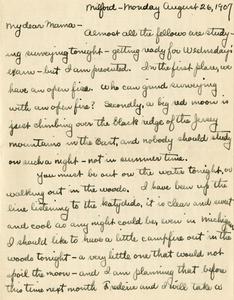 Milford - Monday August 26, 1907
My dear Mama -
Almost all the fellows are study-
ing surveying tonight - getting ready for Wednesday's
exam - but I am prevented. In the first place, we
have an open fire. Who can grind surveying
with an open fire? Secondly, a big red moon is
just climbing over the black ridge of the Jersey
mountains in the East, and nobody should study
on such a night - not in summer time.
You must be out on the water tonight, or
walking out in the woods. I have been up the
line listening to the katydids, it is clear and sweet
and cool as any night could be, even in Michigan.
I should like to have a little campfire out in the
woods tonight - a very little one that would not
spoil the moon - and I am planning that before
this time next month Frederic and I will take a